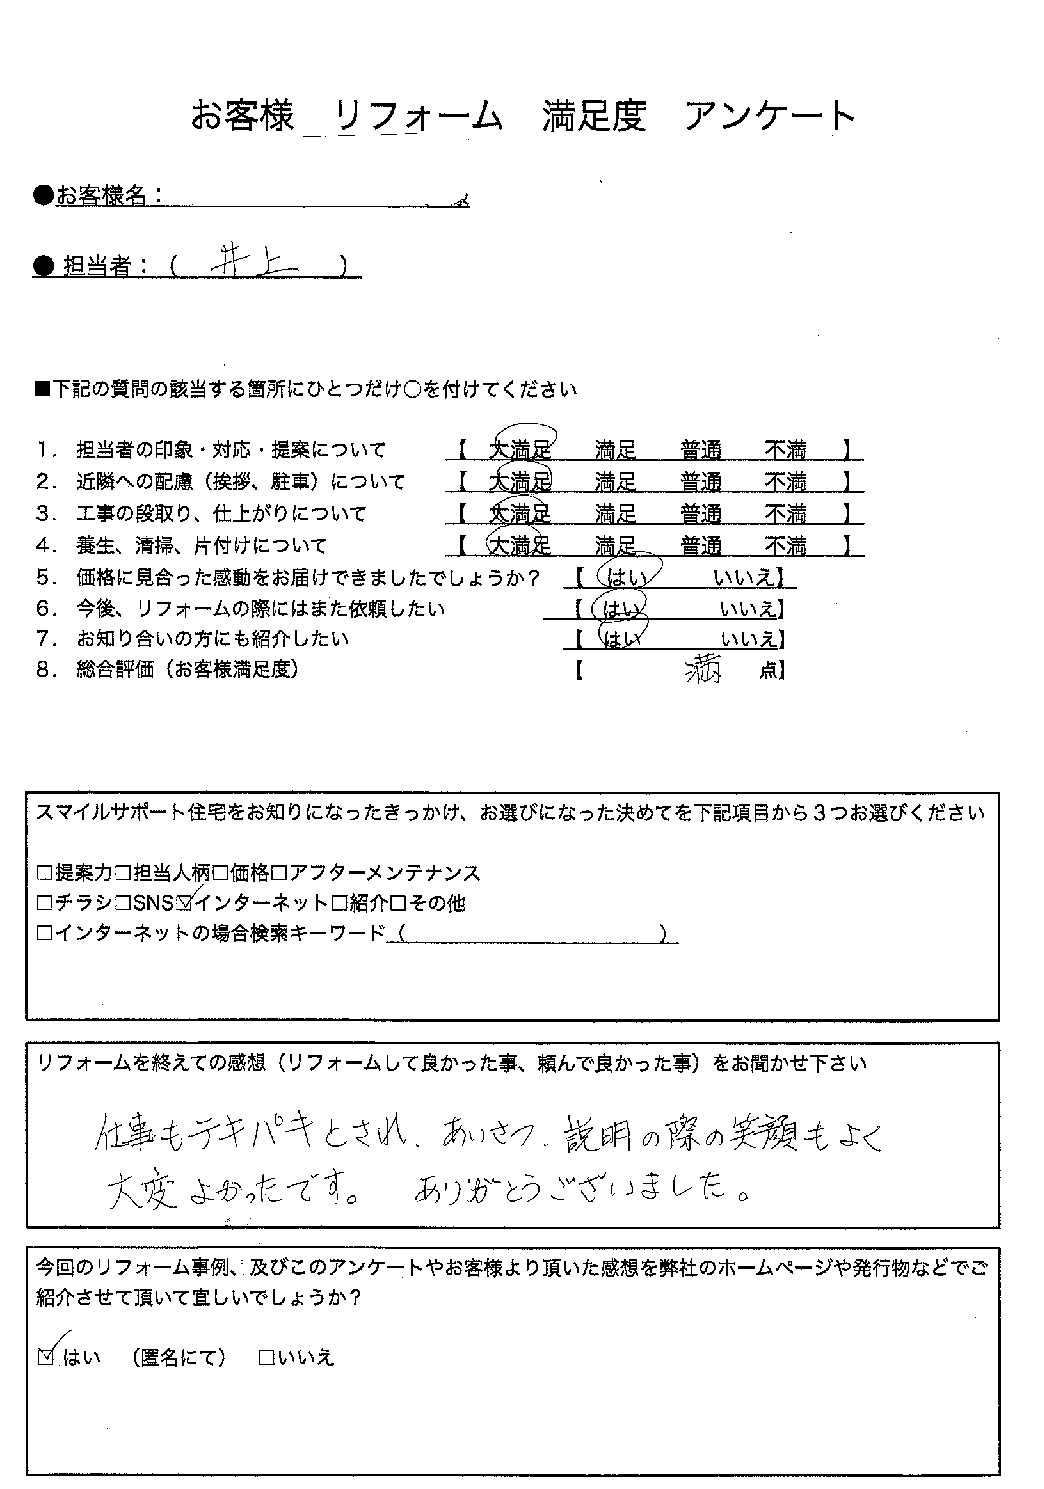 お客様　リフォーム　満足度　アンケート
●お客様名：
● 担当者：（　井上　）
■下記の質問の該当する箇所にひとつだけ○を付けてください
1. 担当者の印象・対応・提案について　【　大満足　満足　普通　不満　】
2. 近隣への配慮（挨拶、駐車）について　【　大満足　満足　普通　不満　】
3. 工事の段取り、仕上がりについて　【　大満足　満足　普通　不満　】
4. 養生、清掃、片付けについて　【　大満足　満足　普通　不満　】
5. 価格に見合った感動をお届けできましたでしょうか？　【　はい　いいえ】
6. 今後、リフォームの際にはまた依頼したい　【　はい　いいえ】
7. お知り合いの方にも紹介したい　【　はい　いいえ】
8. 総合評価（お客様満足度）　【　満　点】
スマイルサポート住宅をお知りになったきっかけ、お選びになった決めてを下記項目から３つお選びください
□提案力□担当人柄□価格□アフターメンテナンス
□チラシ□SNS☑インターネット□紹介□その他
□インターネットの場合検索キーワード（　　　）
リフォームを終えての感想（リフォームして良かった事、頼んで良かった事）をお聞かせ下さい
仕事もテキパキとされ、あいさつ、説明の際の笑顔もよく
大変よかったです。　ありがとうございました。
今回のリフォーム事例、及びこのアンケートやお客様より頂いた感想を弊社のホームページや発行物などでご
紹介させて頂いて宜しいでしょうか？
☑はい　（匿名にて）　□いいえ